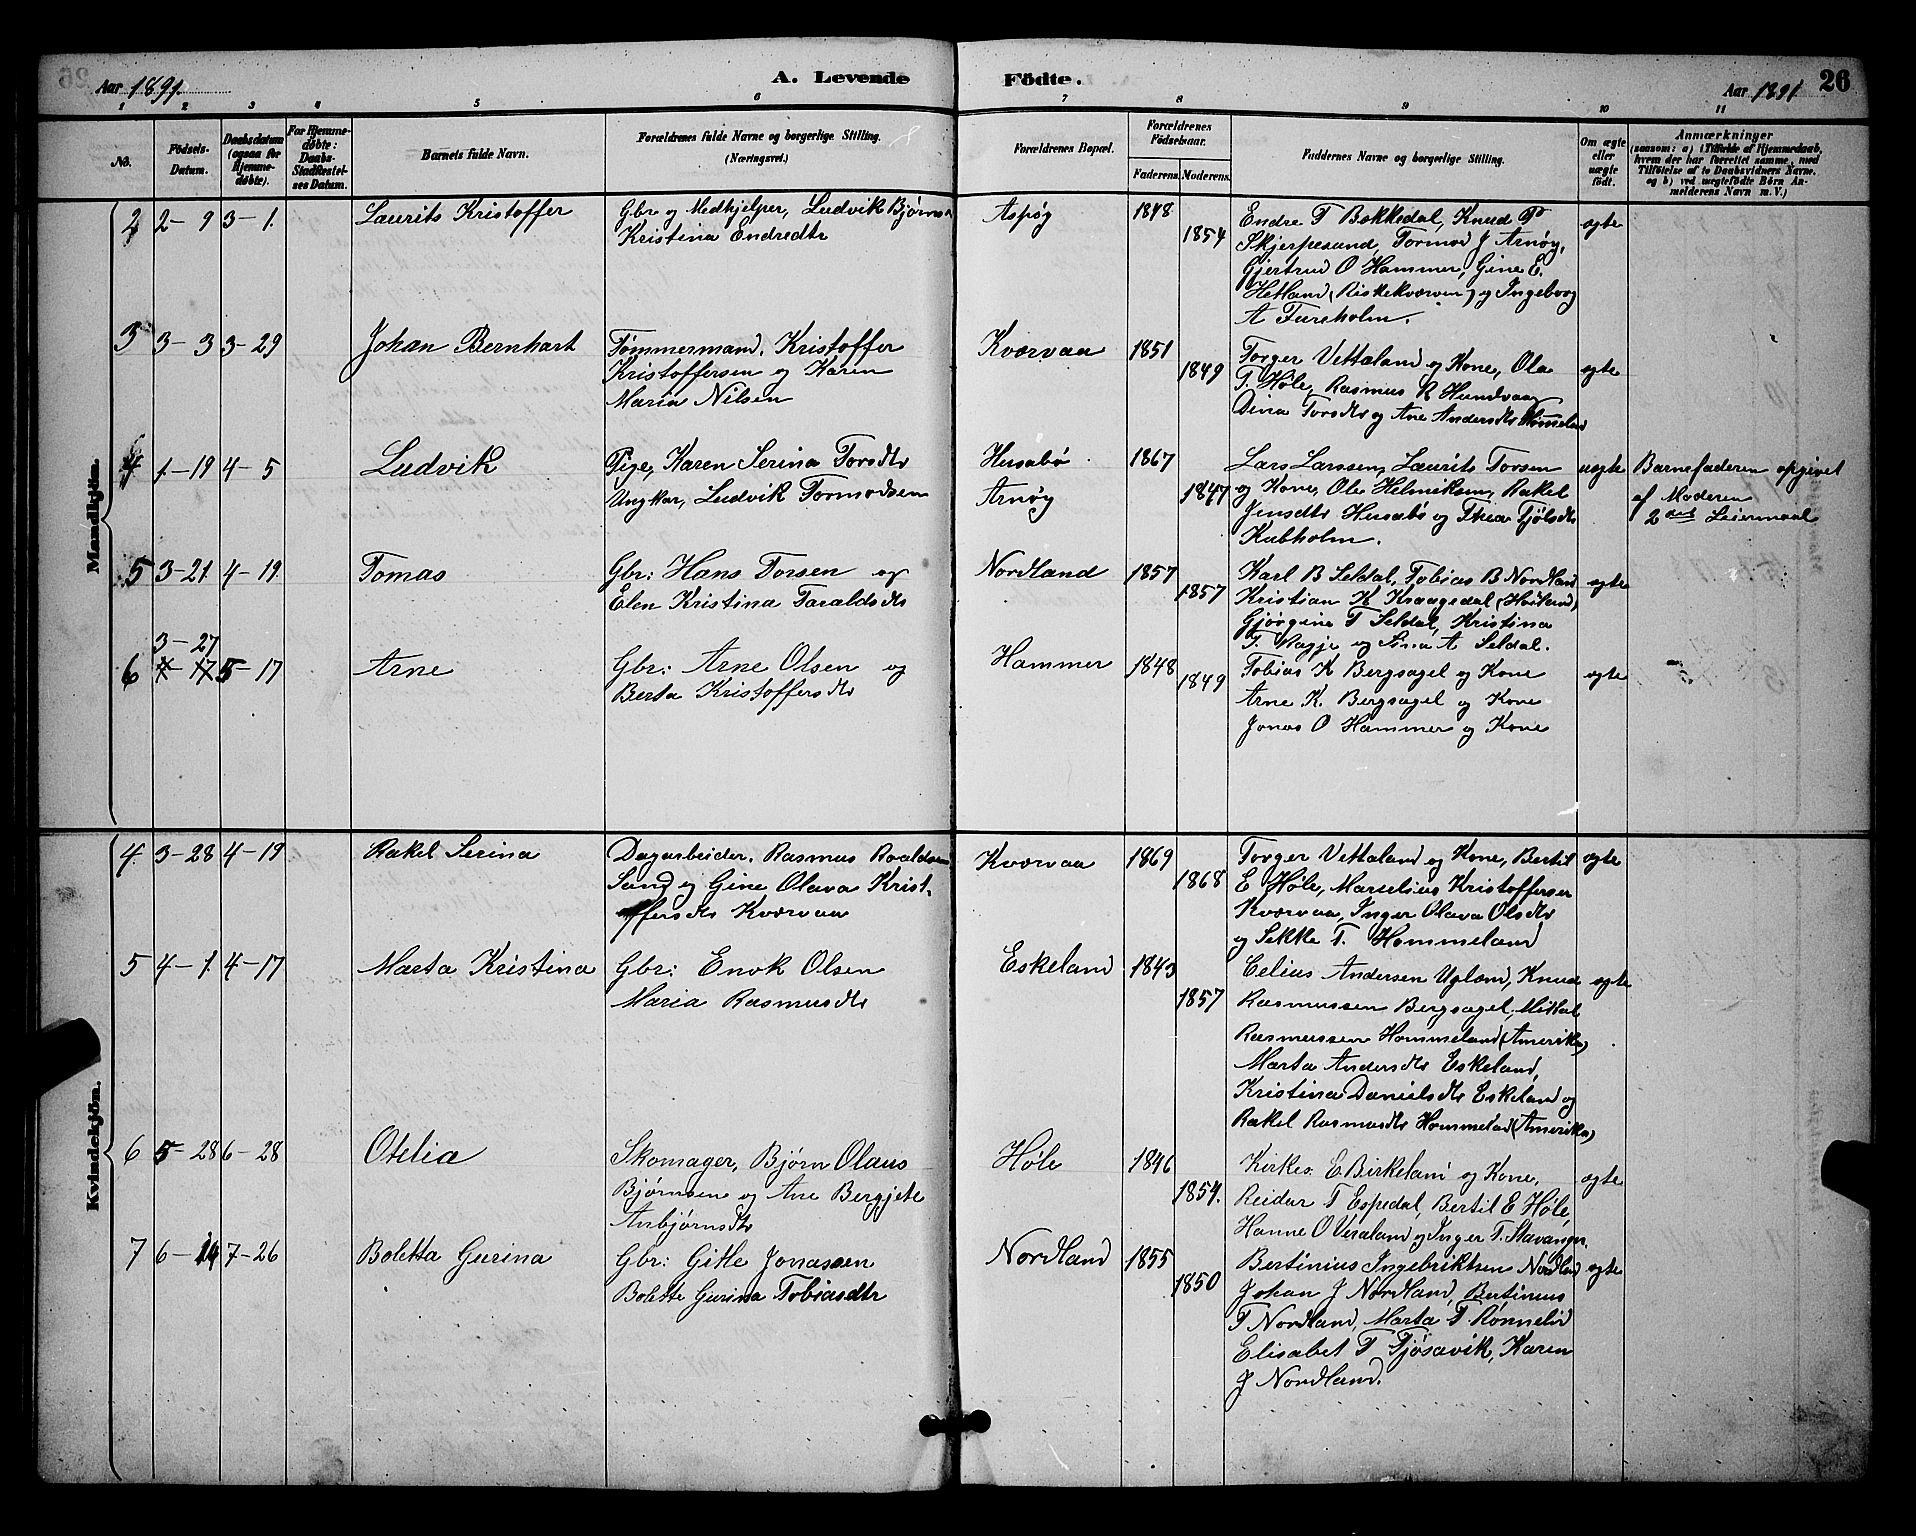 Aar 1891.
A. Levende Födte.
Aar 1891
26
1 2 3 4 5 6 7 8 9 10 11
No.
Födsels-Datum.
Daabsdatum (ogsaa for Hjemme-døbte).
For Hjemme-døbte: Daabs-Stadfæstel-ses Datum.
Barnets fulde Navn.
Forældrenes fulde Navne og borgerlige Stilling. (Næringsvei.)
Forældrenes Bopæl.
Forældrenes Födselsaar.
Faderens. Moderens.
Faddernes Navne og borgerlige Stilling.
Om ægte eller uægte født.
Anmærkninger
(saasom: a) i Tilfælde af Hjemmedaab, hvem der har forrettet samme, med Tilføielse af to Daabsvidners Navne, og b) ved uægtefödte Börn An-melderens Navn m. V.)
Mandkjön.
2 2-9 3-1. Laurits Kristoffer
Gbr og Medhjelper, Ludvik Bjørns
Kristina Endredtr
Aspøy 1848 1854
Endre T Bokkedal, Knud P
Skjerpesund, Tormod J Arnøy,
Gjertrud O Hammer, Gine E.
Hetland (Riskekværven) og Ingeborg
A Fureholm.
egte
3 3-3 3-29 Johan Bernhart
Tømmermand, Kristoffer
Kristoffersen og Karen
Maria Nilsen
Kværvaa 1851 1849
Torger Vettaland og Kone, Ola
T. Høle, Rasmus R Hundvaag
Dina Torsdtr og Ane Andersdtr Hommeland
egte
4 1-19 4-5 Ludvik
Pige, Karen Serina Torsdtr
Ungkar, Ludvik Tormodsen
Husabø
Arnøy
1867 1847
Lars Larssen, Laurits Torsen
og Kone, Ole Helmiksen, Rakel
Jensdtr Husabø og Thea Fjølsdtr
Kubholm.
uegte
Barnefaderen opgivet
af Moderen
2det Leiermaal
5 3-21 4-19 Tomas
Gbr: Hans Torsen og
Elen Kristina Taraldsdtr
Nordland 1857 1857
Karl B Seldal, Tobias B Nordland
Kristian K Kraagedal (Høiland)
Gjørgine T Seldal, Kristina
T. Ragje og Sina A Seldal.
egte
3-27
6 4-17 5-17 Arne
Gbr: Arne Olsen og
Berta Kristoffersdtr
Hammer 1848 1849
Tobias K Bergsagel og Kone
Arne K. Bergsagel og Kone
Jonas O Hammer og Kone
egte
Kvindekjön.
4. 3-28 4-19 Rakel Serina
Dagarbeider, Rasmus Roaldsen
Sand og Gine Olava Krist-
offersdtr Kværvaa
Kværvaa 1869 1868
Torger Vettaland og Kone, Bertil
E Høle, Marselius Kristoffersen
Kværvaa, Inger Olava Olsdtr
og Sekke T. Hommeland
egte
5 4-1. 4-17 Marta Kristina
Gbr: Enok Olsen
Maria Rasmusdtr
Eskeland 1843 1857
Celius Andersen Ugland, Knud
Rasmussen Bergsagel, Mikkal
Rasmussen Hommeland (Amerika)
Marta Andersdtr Eskeland,
Kristina Danielsdtr Eskeland og
Rakel Rasmusdtr Hommeland (Amerika)
egte
6 5-28 6-28 Otelia
Skomager, Bjørn Olaus
Bjørnsen og Ane Bergjete
Asbjørnsdtr
Høle 1846 1854.
Kirkes. E. Birkeland og Kone,
Reidar T Espedal, Bertil E Høle,
Hanne O Veraland og Inger T. Stavanger.
ægte
7 6-14 7-26 Boletta Gurina
Gbr: Gitle Jonassen
Bolette Gurina Tobiasdtr
Nordland 1855 1850
Bertinius Ingebriktsen Nordland
Johan J Nordland, Bertinius
T Nordland, Marta T. Rønnelid
Elisabet T Fjøsavik, Karen
J Nordland.
egte